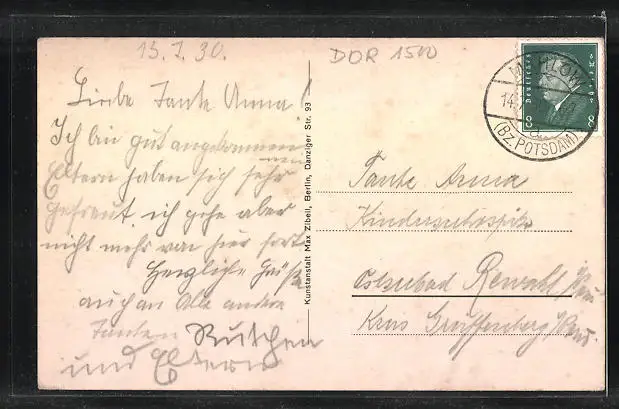 13.7.30.
DDR 1500
Liebe Tante Anna!
Ich bin gut angekommen
Eltern haben sich sehr
gefreut ich gehe aber
nicht mehr von hier fort
Herzliche Grüße
auch an Alle andere
Tanten Rutchen
und Eltern
Kunstanstalt Max Zibell, Berlin, Danziger Str. 93
MAHLOW
14.7.
(BZ. POTSDAM)
Deutsches Reich
8 8
Tante Anna
Ostseebad Rewahl
Kreis Greiffenberg